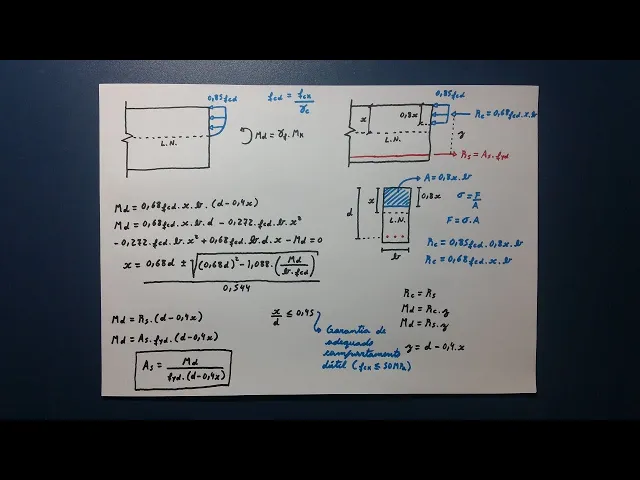 0,85fcd
fcd = fck/γc
L.N.
Md = γf.Mk
0,85fcd
x
0,8x
Rc = 0,68fcd.x.b
z
L.N.
Rs = As.fyd
A = 0,8x.b
d
x
0,8x
L.N.
b
σ = F/A
F = σ.A
Rc = 0,85fcd.0,8x.b
Rc = 0,68fcd.x.b
Md = 0,68fcd.x.b.(d-0,4x)
Md = 0,68fcd.x.b.d - 0,272.fcd.b.x²
-0,272.fcd.b.x² + 0,68fcd.b.d.x - Md = 0
x = 0,68d ± √((0,68d)² - 1,088.(Md/b.fcd)) / 0,544
Rc = Rs
Md = Rc.z
Md = Rs.z
z = d - 0,4.x
Md = Rs.(d-0,4x)
Md = As.fyd.(d-0,4x)
As = Md/fyd.(d-0,4x)
x/d ≤ 0,45
Garantia de
adequado
comportamento
dútil (fck ≤ 50MPa)